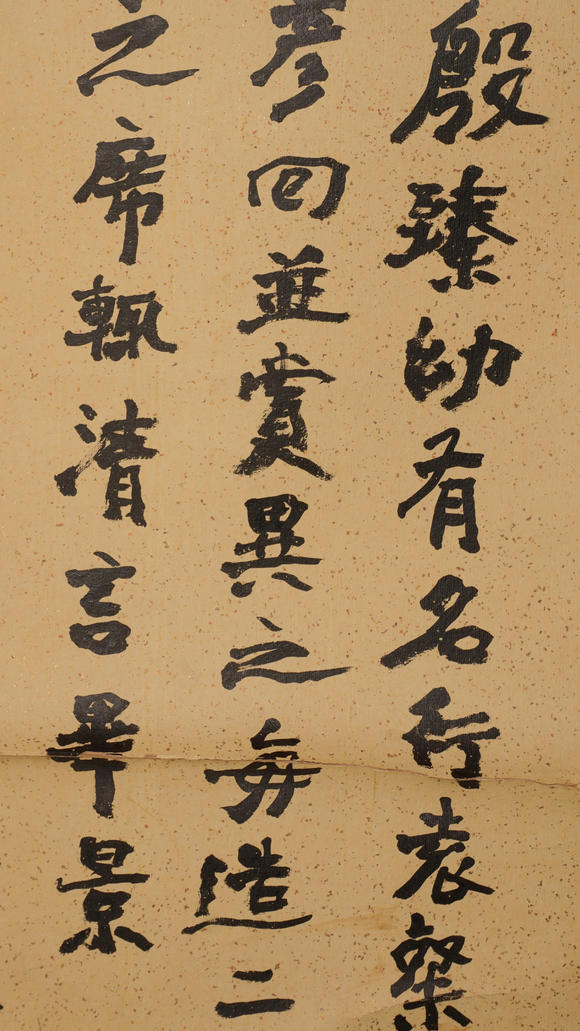 殷臻幼有名行袁粲
彥回並賞異之每造二
之席輒清言畢景